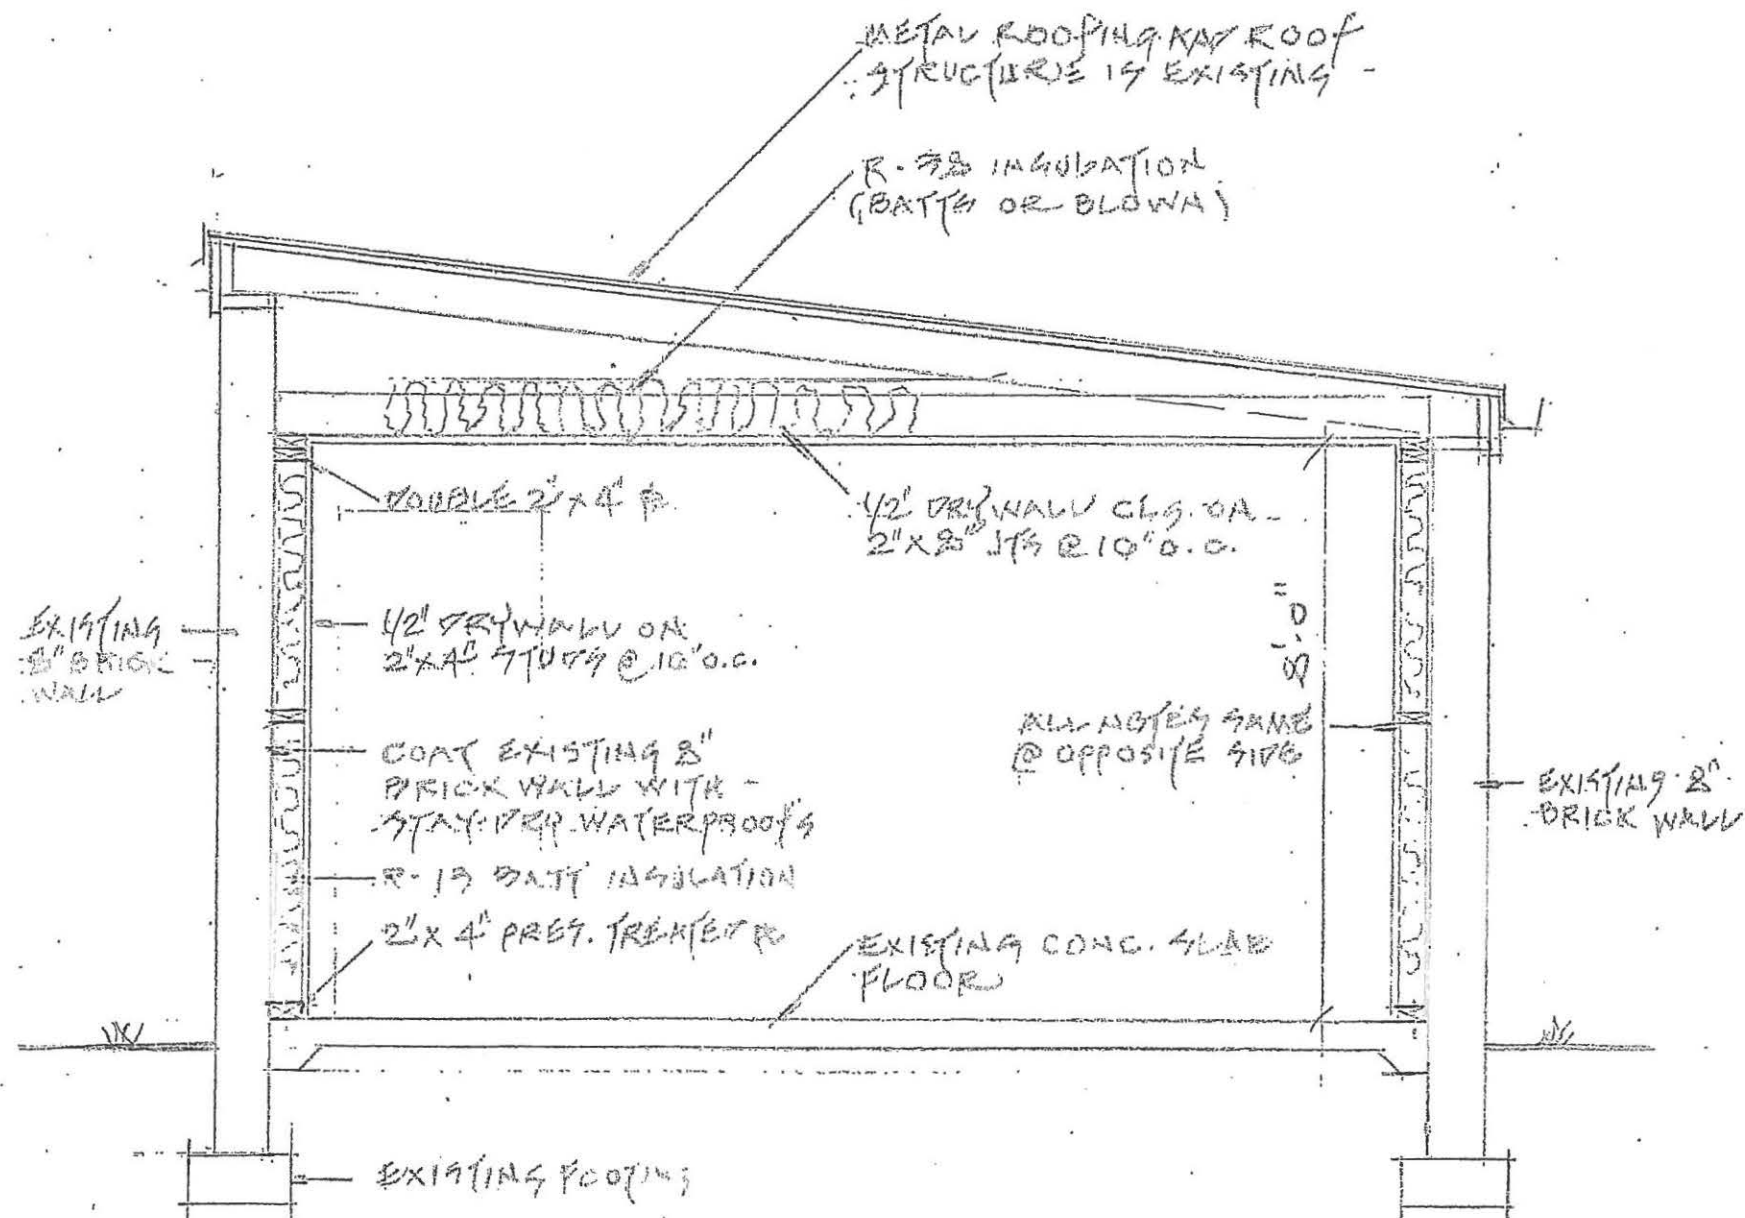 METAL ROOFING AND ROOF
STRUCTURE IS EXISTING -
R-38 INSULATION
(BATTS OR BLOWN)
DOUBLE 2"x4" PL
1/2" DRYWALL CLG. ON
2"x8" JTS @ 16" O.C.
EXISTING
8" BRICK
WALL
1/2" DRYWALL ON
2"x4" STUDS @ 16" O.C.
8'-0"
ALL NOTES SAME
@ OPPOSITE SIDE
COAT EXISTING 8"
BRICK WALL WITH -
STAY-DRY WATERPROOF'G
EXISTING 8"
BRICK WALL
R-13 BATT INSULATION
2"x4" PRES. TREATED PL
EXISTING CONC. SLAB
FLOOR
EXISTING FOOTING